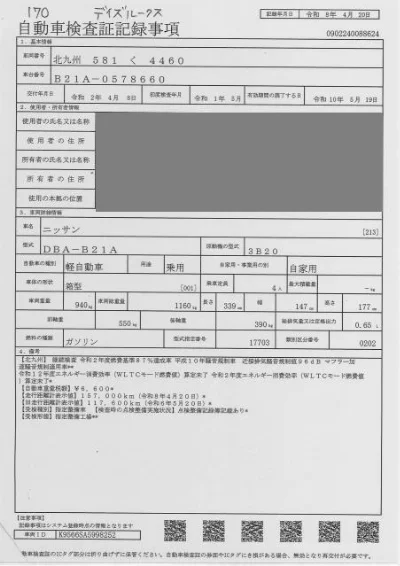 170 デイズルークス
自動車検査証記録事項
記録年月日 令和 8年 4月 20日
0902240088624
1. 基本情報
車両番号 北九州 581 く 4460
車台番号 B21A-0578660
交付年月日 令和 2年 4月 8日 初度検査年月 令和 1年 5月 有効期間の満了する日 令和 10年 5月 19日
2. 使用者・所有者情報
使用者の氏名又は名称
使用者の住所
所有者の氏名又は名称
所有者の住所
使用の本拠の位置
3. 車両詳細情報
車名 ニッサン [213]
型式 DBA-B21A 原動機の型式 3B20
自動車の種別 軽自動車 用途 乗用 自家用・事業用の別 自家用
車体の形状 箱型 [001] 乗車定員 4人 最大積載量 -kg
車両重量 940kg 車両総重量 1160kg 長さ 339cm 幅 147cm 高さ 177cm
前軸重 550kg 後軸重 390kg 総排気量又は定格出力 0.65L
燃料の種類 ガソリン 型式指定番号 17703 類別区分番号 0202
4. 備考
【北九州】 継続検査 令和2年度燃費基準87%達成車 平成10年騒音規制車 近接排気騒音規制値96dB マフラー加
速騒音規制適用車**
令和12年度エネルギー消費効率(WLTCモード燃費値)算定未了 令和2年度エネルギー消費効率(WLTCモード燃費値
)算定未了*
【自動車重量税額】¥6,600*
【走行距離計表示値】157,000km(令和8年4月20日)*
【旧走行距離計表示値】117,600km(令和6年5月20日)*
【受検種別】指定整備車 【検査時の点検整備実施状況】点検整備記録簿記載あり*
【受検形態】指定整備工場**
【注意事項】
記録事項はシステム登録時点の情報となります
車両ID K9566SA5998252
動車検査証のICタグ部分は折り曲げずに保管ください。自動車検査証の券面やICタグに毀損がある場合、無効となり再交付が必要です。